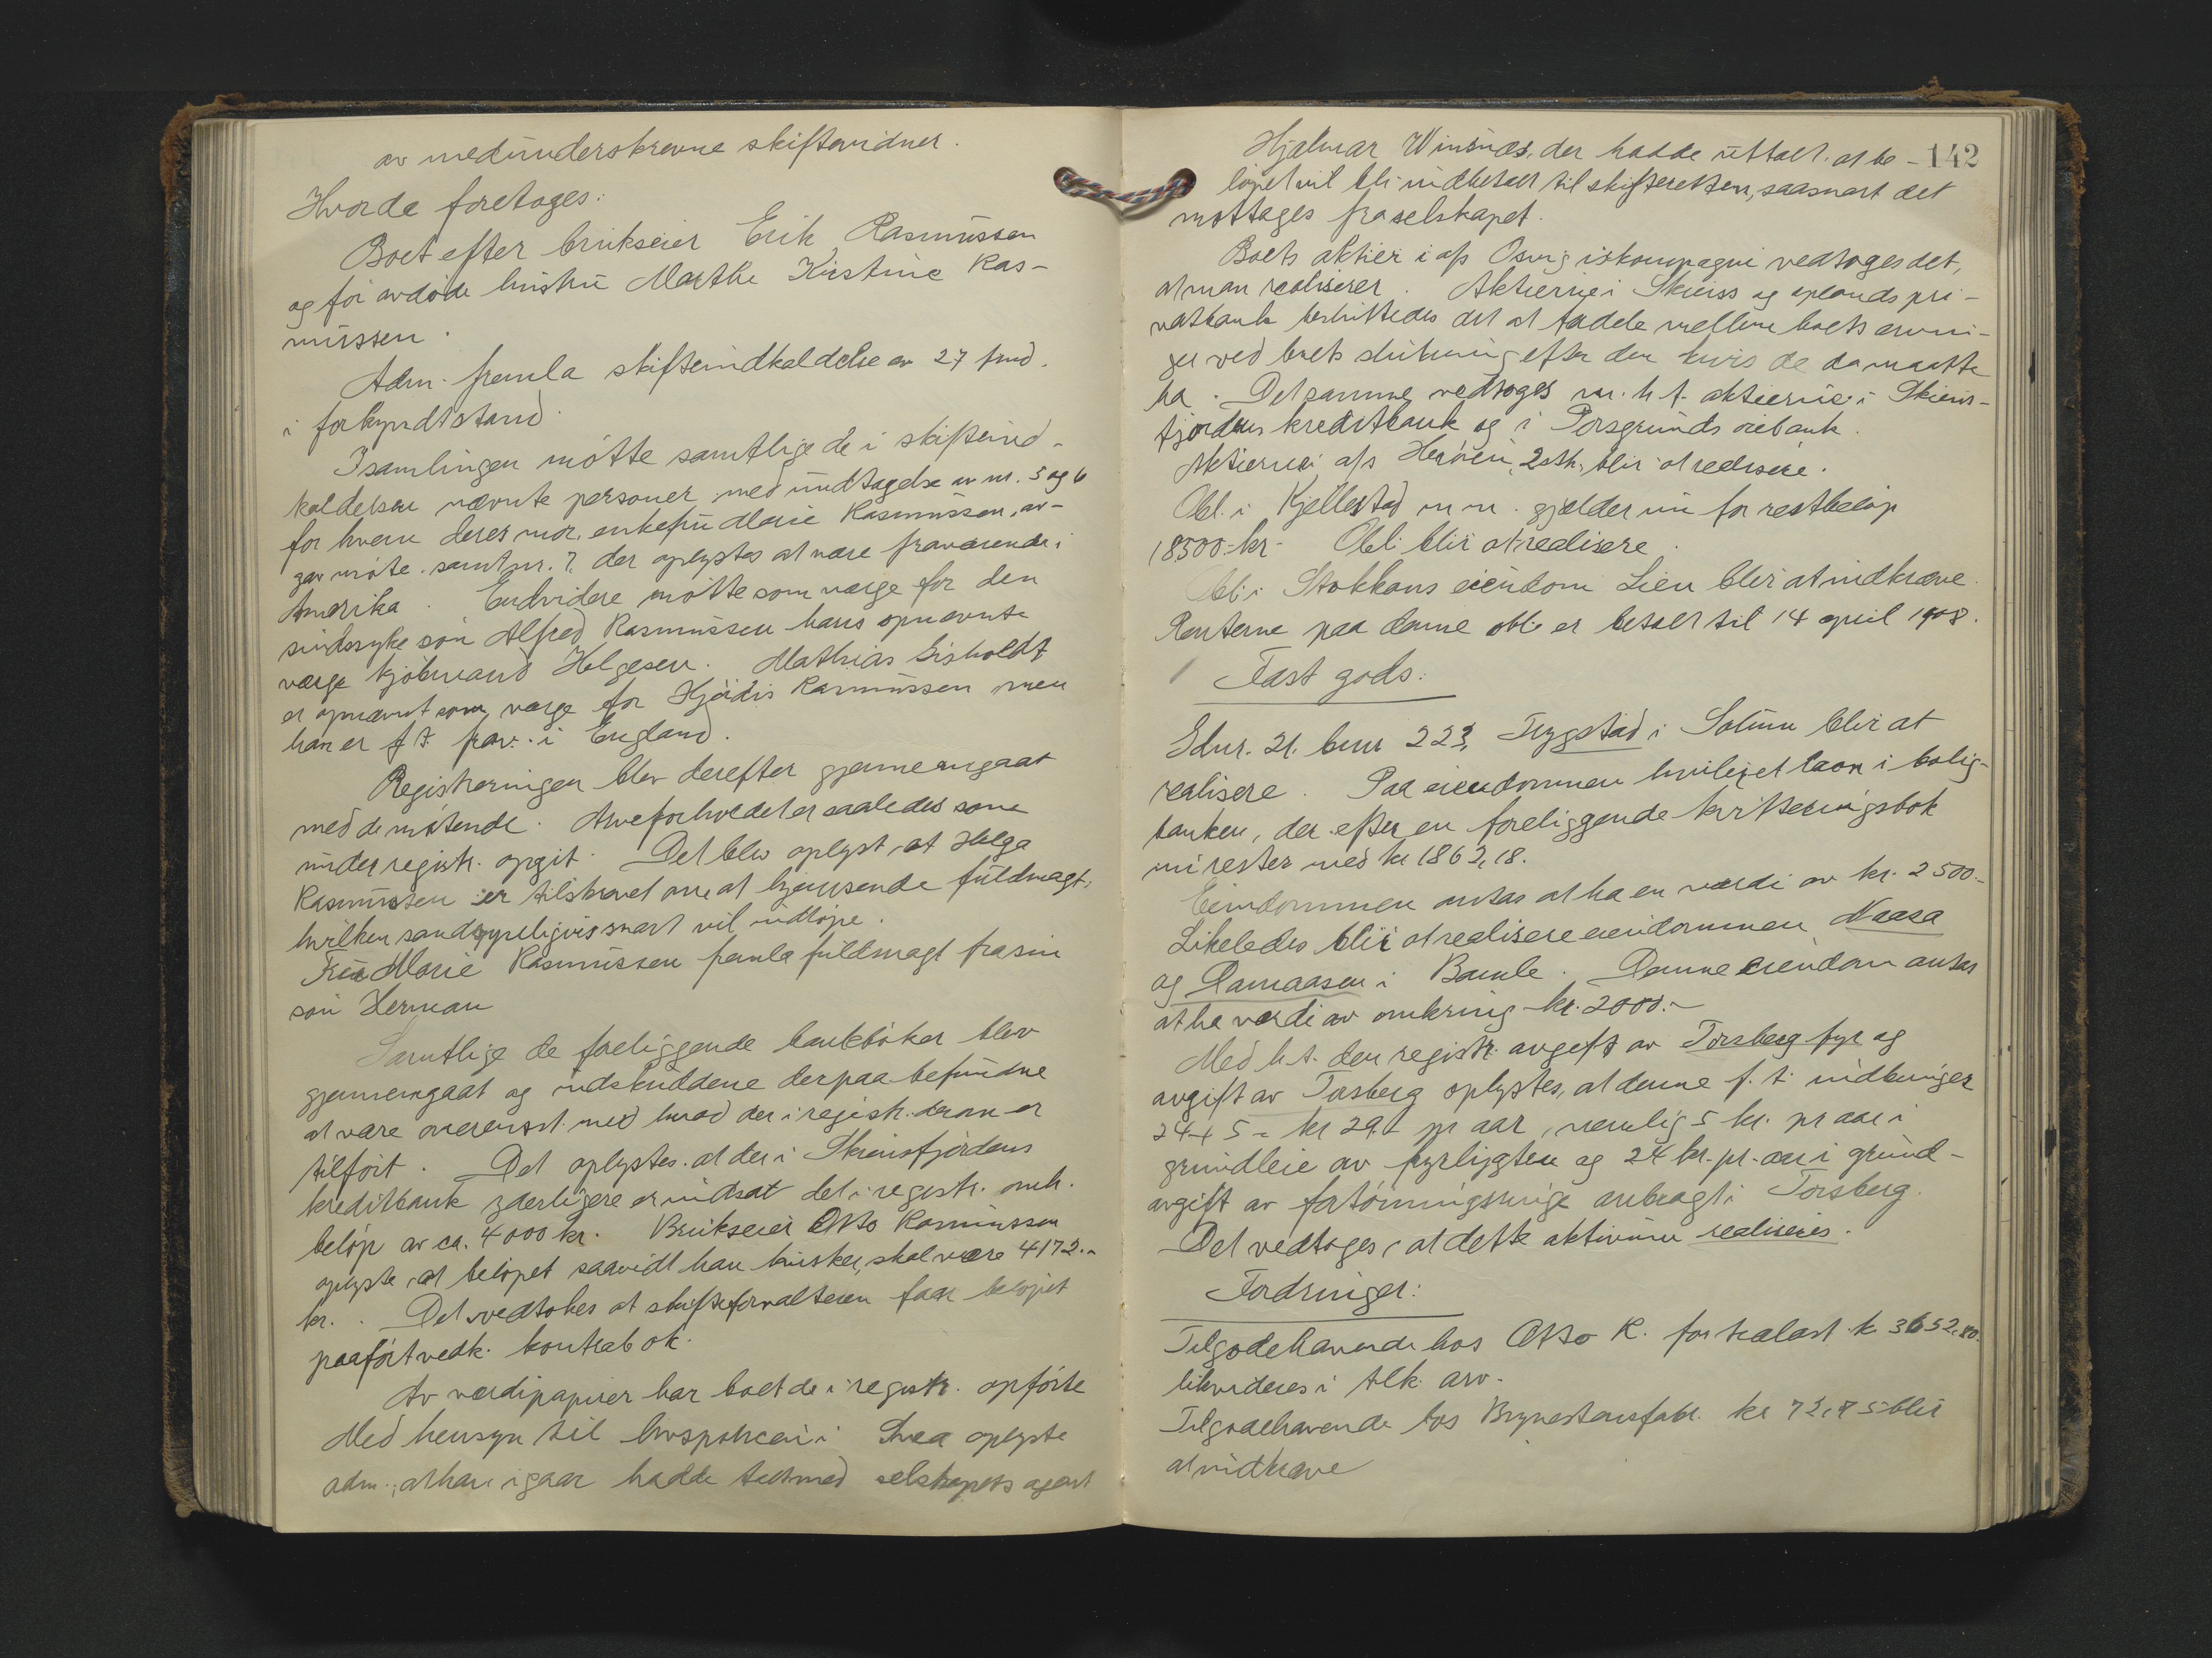 av medunderskrevne skiftevidner.
Hvorda foretoges:
Boet efter brukseier Erik Rasmussen
og för avdöde hustru Marthe Kirstine Ras-
mussen.
Adm. fremla skifteindkaldelse av 27 fmd.
i forkyndt stand.
I samlingen mötte samtlige de i skifteind-
kaldelsen nævnte personer med undtagelse av nr. 5 og 6
for hvem deres mor, enkefru Marie Rasmussen, av-
gav möte, samt nr. 7, der oplystes at være fraværende i
Amerika. Endvidere mötte som værge for den
sindssyke sön Alfred Rasmussen hans opnævnte
værge kjöbmand Helgesen. Mathias Gisholdt
er opnævnt som værge for Hjördis Rasmussen men
han er f.t. frav. i England.
Registreringen blev derefter gjennemgaat
med de mötende. Arveforholdet er saaledes som
under registr. opgit. Det blev oplyst, at Helga
Rasmussen er tilskrevet om at hjemsende fuldmagt,
hvilken sandsynligvis snart vil indlöpe.
Fru Marie Rasmussen fremla fuldmagt fra sin
sön Herman
Samtlige de foreliggende bankböker blev
gjennemgaat og indskuddene derpaa befundne
at være overensst. med hvad der i registr. derom er
tilfört. Det oplystes, at der i Skiensfjordens
kreditbank yderligere er indsat det i registr. omh.
belöp av ca. 4000 kr. Brukseier Otto Rasmussen
oplyste, at belöpet saavidt han husker, skal være 4172.-
kr. Det vedtokes at skifteforvalteren faar belöpet
paafört vedk. kontrabok.
Av værdipapirer har boet de i registr. opförte
Med hensyn til livspolicen i Svea oplyste
adm., at han igaar hadde talt med selskapets agent
142
Hjalmar Winsnæs, der hadde uttalt, at be-
löpet vil bli indbetalt til skifteretten, saasnart det
mottages fra selskapet.
Boets aktier i a/s Osvig iskompagni vedtoges det,
at man realiserer. Aktierne i Skiens og oplands pri-
vatbank besluttedes det at fordele mellem boets arvin-
ger ved boets slutning efter den kurs de da maatte
ha. Det samme vedtoges m.h.t. aktierne i Skiens-
fjordens kreditbank og i Porsgrunds viebank.
Aktierne i a/s Heröien, 2 stk. blir at realisere.
Obl. i Kjellestad m.m. gjælder nu for restbelöp
18500.- kr. Obl. blir at realisere.
Obl. i Stokkans eiendom Lien blir at indkræve.
Renterne paa denne obl. er betalt til 14 april 1908.
Fast gods:
Gdnr. 21. bnr 223, Trygstad i Solum blir at
realisere. Paa eiendommen hviler et laan i bolig-
banken, der efter en foreliggende kvitteringsbok
nu rester med kr 1862,18.
Eiendommen antas at ha en værdi av kr. 2500.-
Likeledes blir at realisere eiendommen Naasa
og Ramaasen i Bamle. Denne eiendom antas
at ha værdi av omkring kr. 2000.-
Med h.t. den registr. avgift av Torsberg fyr og
avgift av Torsberg oplystes, at denne f.t. indbringer
24 + 5 = kr 29.- pr aar, nemlig 5 kr. pr aar i
grundleie av fyrlygten og 24 kr. pr. aar i grund-
avgift av fortöiningsringe anbragt i Torsberg.
Det vedtoges, at dette aktivum realiseres.
Fordringer:
Tilgodehavende hos Otto R. for trælast kr 3652,80.
likvideres i tilk. arv.
Tilgodehavende hos Brynestensfabr. kr 72,75 blir
at indkræve